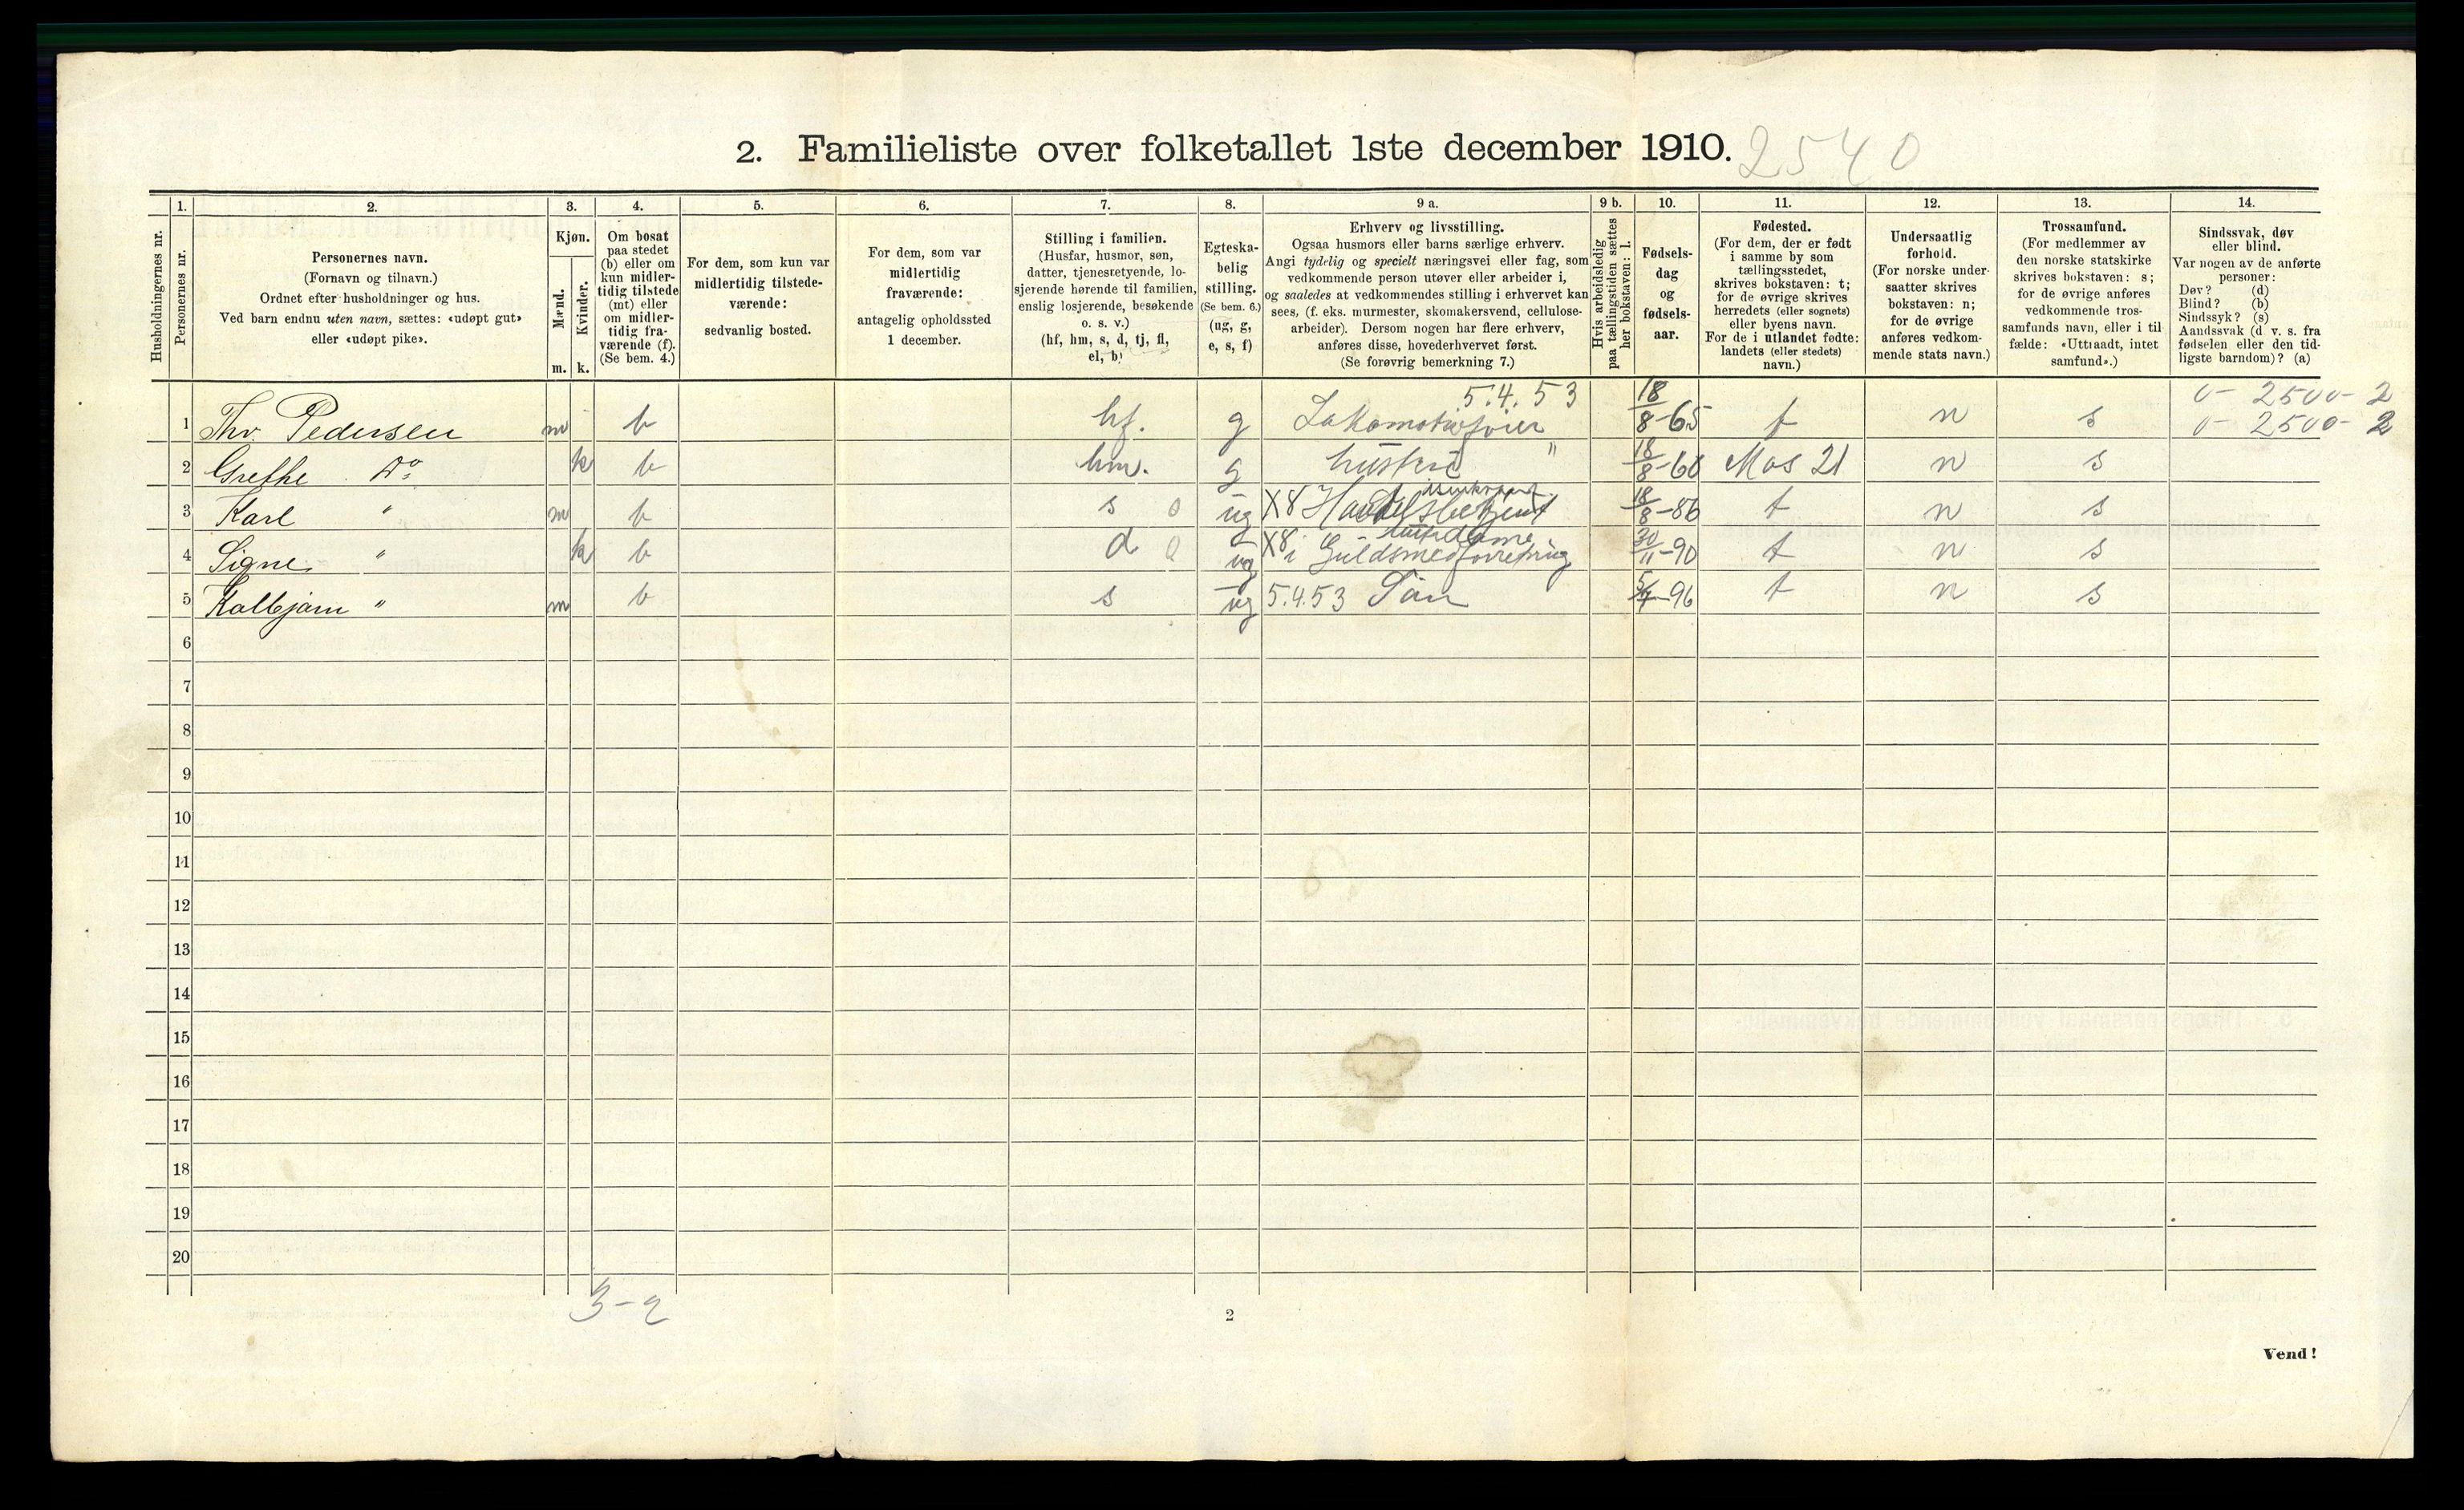 2. Familieliste over folketallet 1ste december 1910. 2540
1. 2. 3. 4. 5. 6. 7. 8. 9 a. 9 b. 10. 11. 12. 13. 14.
Husholdningernes nr.
Personernes nr.
Personernes navn.
(Fornavn og tilnavn.)
Ordnet efter husholdninger og hus.
Ved barn endnu uten navn, sættes: «udøpt gut»
eller «udøpt pike».
Kjøn.
Mænd.
Kvinder.
m. k.
Om bosat
paa stedet
(b) eller om
kun midler-
tidig tilstede
(mt) eller
om midler-
tidig fra-
værende (f).
(Se bem. 4.)
For dem, som kun var
midlertidig tilstede-
værende:
sedvanlig bosted.
For dem, som var
midlertidig
fraværende:
antagelig opholdssted
1 december.
Stilling i familien.
(Husfar, husmor, søn,
datter, tjenestetyende, lo-
sjerende hørende til familien,
enslig losjerende, besøkende
o. s. v.)
(hf, hm, s, d, tj, fl,
el, b)
Egteska-
belig
stilling.
(Se bem. 6.)
(ug, g,
e, s, f)
Erhverv og livsstilling.
Ogsaa husmors eller barns særlige erhverv.
Angi tydelig og specielt næringsvei eller fag, som
vedkommende person utøver eller arbeider i,
og saaledes at vedkommendes stilling i erhvervet kan
sees, (f. eks. murmester, skomakersvend, cellulose-
arbeider). Dersom nogen har flere erhverv,
anføres disse, hovederhvervet først.
(Se forøvrig bemerkning 7.)
Hvis arbeidsledig
paa tællingstiden sættes
her bokstaven: l.
Fødsels-
dag
og
fødsels-
aar.
Fødested.
(For dem, der er født
i samme by som
tællingsstedet,
skrives bokstaven: t;
for de øvrige skrives
herredets (eller sognets)
eller byens navn.
For de i utlandet fødte:
landets (eller stedets)
navn.)
Undersaatlig
forhold.
(For norske under-
saatter skrives
bokstaven: n;
for de øvrige
anføres vedkom-
mende stats navn.)
Trossamfund.
(For medlemmer av
den norske statskirke
skrives bokstaven: s;
for de øvrige anføres
vedkommende tros-
samfunds navn, eller i til
fælde: «Uttraadt, intet
samfund».)
Sindssvak, døv
eller blind.
Var nogen av de anførte
personer:
Døv? (d)
Blind? (b)
Sindssyk? (s)
Aandssvak (d. v. s. fra
fødselen eller den tid-
ligste barndom)? (a)
5.4.53 0- 2500- 2
1 Thv. Pedersen m b hf. g Lokomotivfører 18/8-65 t n s 0- 2500- 2
2 Grethe Do k b hm. g hustru " 18/8-60 Mos 21 n s
3 Karl " m b s 0 ug X8 Handelsbetjent 18/8-86 t n s
4 Signe " k b d 0 ug X8 i Guldsmedforretning 30/11-90 t n s
5 Kolbjørn " m b s ug 5.4.53 Søn 5/7-96 t n s
6
7
8
9
10
11
12
13
14
15
16
17
18
19
20
3-2
2
Vend!